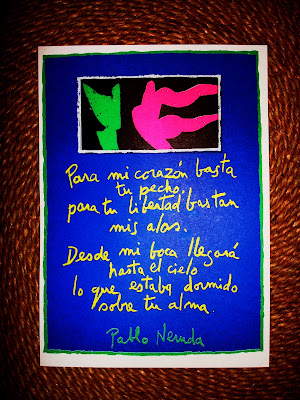 Para mi corazón basta
tu pecho,
para tu libertad bastan
mis alas.
Desde mi boca llegará
hasta el cielo
lo que estaba dormido
sobre tu alma.
Pablo Neruda